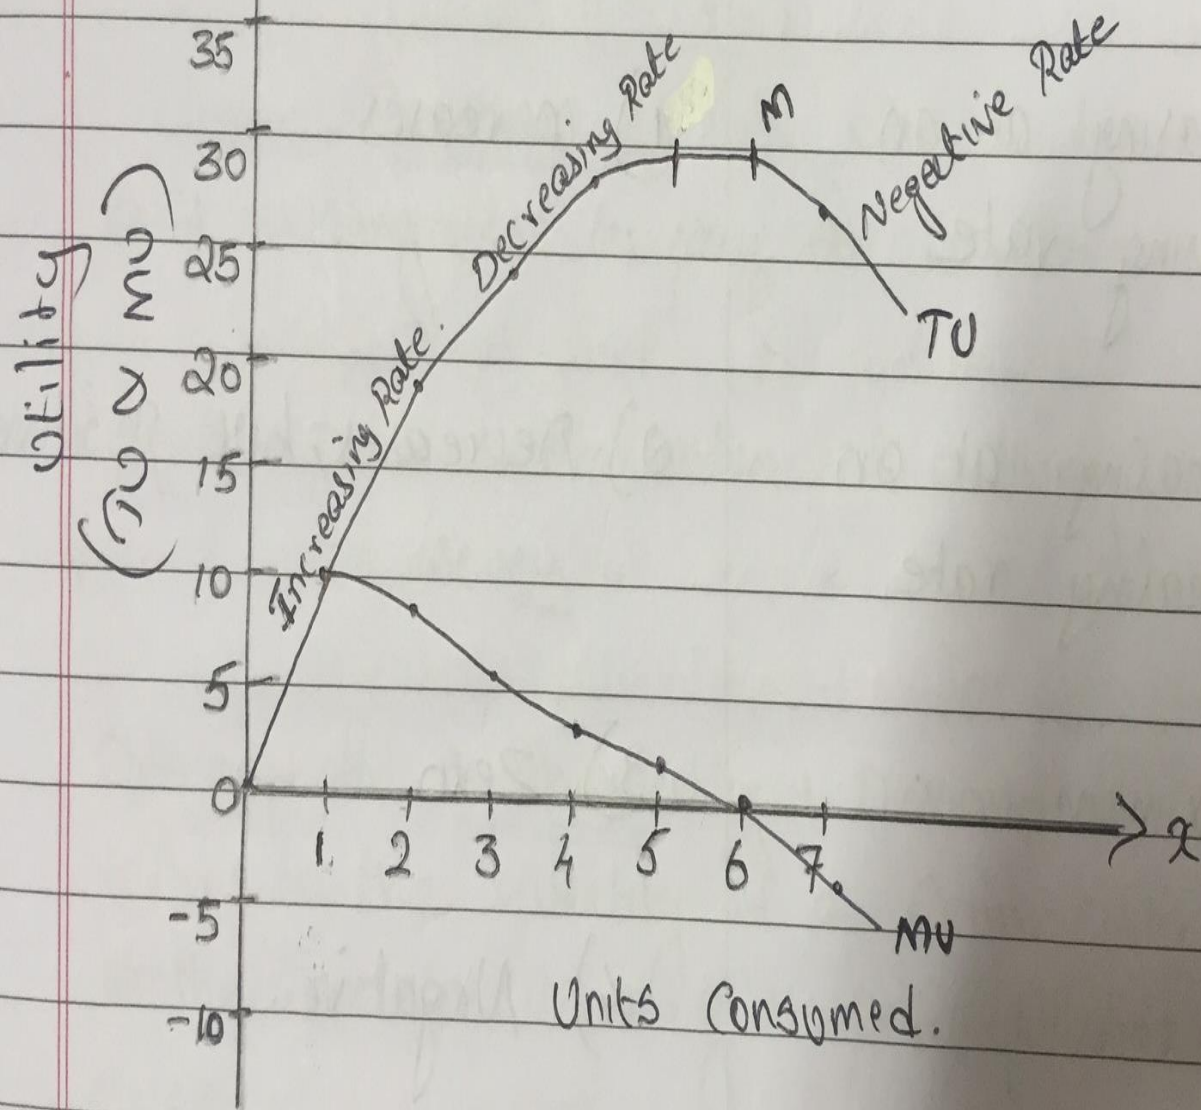 35
30
25
20
15
10
5
0
-5
-10
Utility
Increasing Rate.
Decreasing Rate
M
Negative Rate
TU
1 2 3 4 5 6 7
x
MU
Units Consumed.